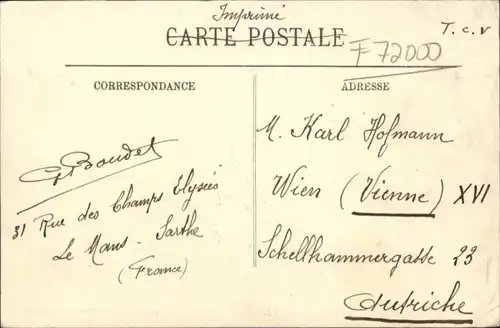 Imprimé
CARTE POSTALE
T. c. v
F72000
CORRESPONDANCE
ADRESSE
G Boudet
31 Rue des Champs Elysées
Le Mans - Sarthe
(France)
M. Karl Hofmann
Wien (Vienne) XVI
Schellhammergasse 23
Autriche